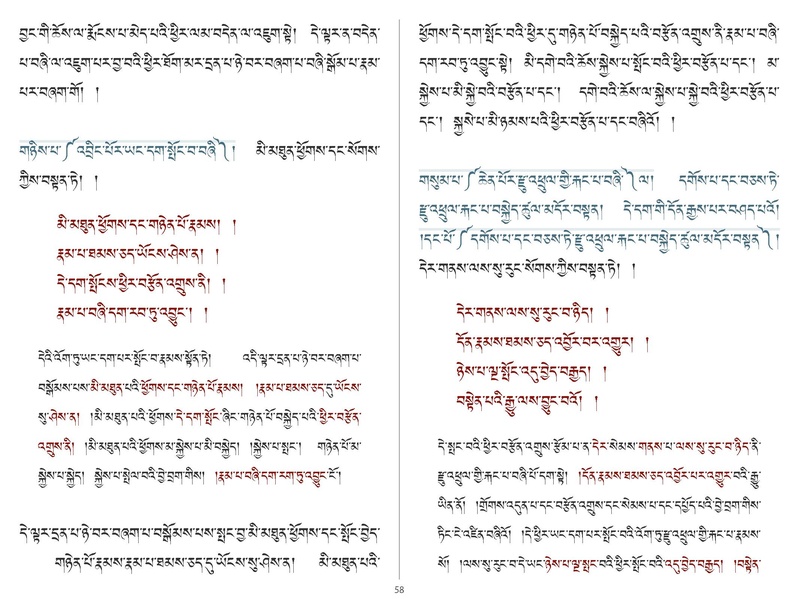 བྱང་གི་ཆོས་ལ་རྨོངས་པ་མེད་པའི་ཕྱིར་ལམ་བདེན་ལ་འཇུག་སྟེ། དེ་ལྟར་ན་བདེན་
པ་བཞི་ལ་འཇུག་པར་བྱ་བའི་ཕྱིར་ཐོག་མར་དྲན་པ་ཉེ་བར་བཞག་པ་བཞི་སྒོམ་པ་རྣམ་
པར་བཞག་གོ། །
གཉིས་པ་༼འབྲིང་པོར་ཡང་དག་སྤོང་བ་བཞི༽། མི་མཐུན་ཕྱོགས་དང་སོགས་
ཀྱིས་བསྟན་ཏེ། །
མི་མཐུན་ཕྱོགས་དང་གཉེན་པོ་རྣམས། །
རྣམ་པ་ཐམས་ཅད་ཡོངས་ཤེས་ན། །
དེ་དག་སྤོངས་ཕྱིར་བརྩོན་འགྲུས་ནི། །
རྣམ་པ་བཞི་དག་རབ་ཏུ་འབྱུང་། །
དེའི་འོག་ཏུ་ཡང་དག་པར་སྤོང་བ་རྣམས་སྟོན་ཏེ། འདི་ལྟར་དྲན་པ་ཉེ་བར་བཞག་པ་
བསྒོམས་པས་མི་མཐུན་པའི་ཕྱོགས་དང་གཉེན་པོ་རྣམས། །རྣམ་པ་ཐམས་ཅད་དུ་ཡོངས་
སུ་ཤེས་ན། །མི་མཐུན་པའི་ཕྱོགས་དེ་དག་སྤོང་ཞིང་གཉེན་པོ་བསྐྱེད་པའི་ཕྱིར་བརྩོན་
འགྲུས་ནི། །མི་མཐུན་པའི་ཕྱོགས་མ་སྐྱེས་པ་མི་བསྐྱེད། །སྐྱེས་པ་སྤང་། གཉེན་པོ་མ་
སྐྱེས་པ་སྐྱེད། སྐྱེས་པ་སྤེལ་བའི་བྱེ་བྲག་གིས། །རྣམ་པ་བཞི་དག་རག་ཏུ་འབྱུང་ངོ་།
དེ་ལྟར་དྲན་པ་ཉེ་བར་བཞག་པ་བསྒོམས་པས་སྤང་བྱ་མི་མཐུན་ཕྱོགས་དང་སྤོང་བྱེད་
གཉེན་པོ་རྣམས་རྣམ་པ་ཐམས་ཅད་དུ་ཡོངས་སུ་ཤེས་ན། མི་མཐུན་པའི་
ཕྱོགས་དེ་དག་སྤོང་བའི་ཕྱིར་དུ་གཉེན་པོ་བསྐྱེད་པའི་བརྩོན་འགྲུས་ནི་རྣམ་པ་བཞི་
དག་རབ་ཏུ་འབྱུང་སྟེ། མི་དགེ་བའི་ཆོས་སྐྱེས་པ་སྤོང་བའི་ཕྱིར་བརྩོན་པ་དང་། མ་
སྐྱེས་པ་མི་སྐྱེ་བའི་བརྩོན་པ་དང་། དགེ་བའི་ཆོས་ལ་སྐྱེས་པ་སྐྱེ་བའི་ཕྱིར་བརྩོན་པ་
དང་། སྐྱསེ་པ་མི་ཉམས་པའི་ཕྱིར་བརྩོན་པ་དང་བཞིའོ། །
གསུམ་པ་༼ཆེན་པོར་རྫུ་འཕྲུལ་གྱི་རྐང་པ་བཞི༽ལ། དགོས་པ་དང་བཅས་ཏེ་
རྫུ་འཕྲུལ་རྐང་པ་བསྐྱེད་ཚུལ་མདོར་བསྟན། དེ་དག་གི་དོན་རྒྱས་པར་བཤད་པའོ།
།དང་པོ་༼དགོས་པ་དང་བཅས་ཏེ་རྫུ་འཕྲུལ་རྐང་པ་བསྐྱེད་ཚུལ་མདོར་བསྟན༽།
དེར་གནས་ལས་སུ་རུང་སོགས་ཀྱིས་བསྟན་ཏེ། །
དེར་གནས་ལས་སུ་རུང་བ་ཉིད། །
དོན་རྣམས་ཐམས་ཅད་འབྱོར་བར་འགྱུར། །
ཉེས་པ་ལྔ་སྤོང་འདུ་བྱེད་བརྒྱད། །
བསྟེན་པའི་རྒྱུ་ལས་བྱུང་བའོ། །
དེ་སྤང་བའི་ཕྱིར་བརྩོན་འགྲུས་རྩོམ་པ་ན་དེར་སེམས་གནས་པ་ལས་སུ་རུང་བ་ཉིད་ནི་
རྫུ་འཕྲུལ་གྱི་རྐང་པ་བཞི་པོ་དག་སྟེ། །དོན་རྣམས་ཐམས་ཅད་འབྱོར་པར་འགྱུར་བའི་རྒྱུ་
ཡིན་ནོ། །གྲོགས་འདུན་པ་དང་བརྩོན་འགྲུས་དང་སེམས་པ་དང་དཔྱོད་པའི་བྱེ་བྲག་གིས་
ཏིང་ངེ་འཛིན་བཞིའོ། །དེ་ཕྱིར་ཡང་དག་པར་སྤོང་བའི་འོག་ཏུ་རྫུ་འཕྲུལ་གྱི་རྐང་པ་རྣམས་
སོ། །ལས་སུ་རུང་བ་དེ་ཡང་ཉེས་པ་ལྔ་སྤང་བའི་ཕྱིར་སྤོང་བའི་འདུ་བྱེད་བརྒྱད། །བསྟེན་
58